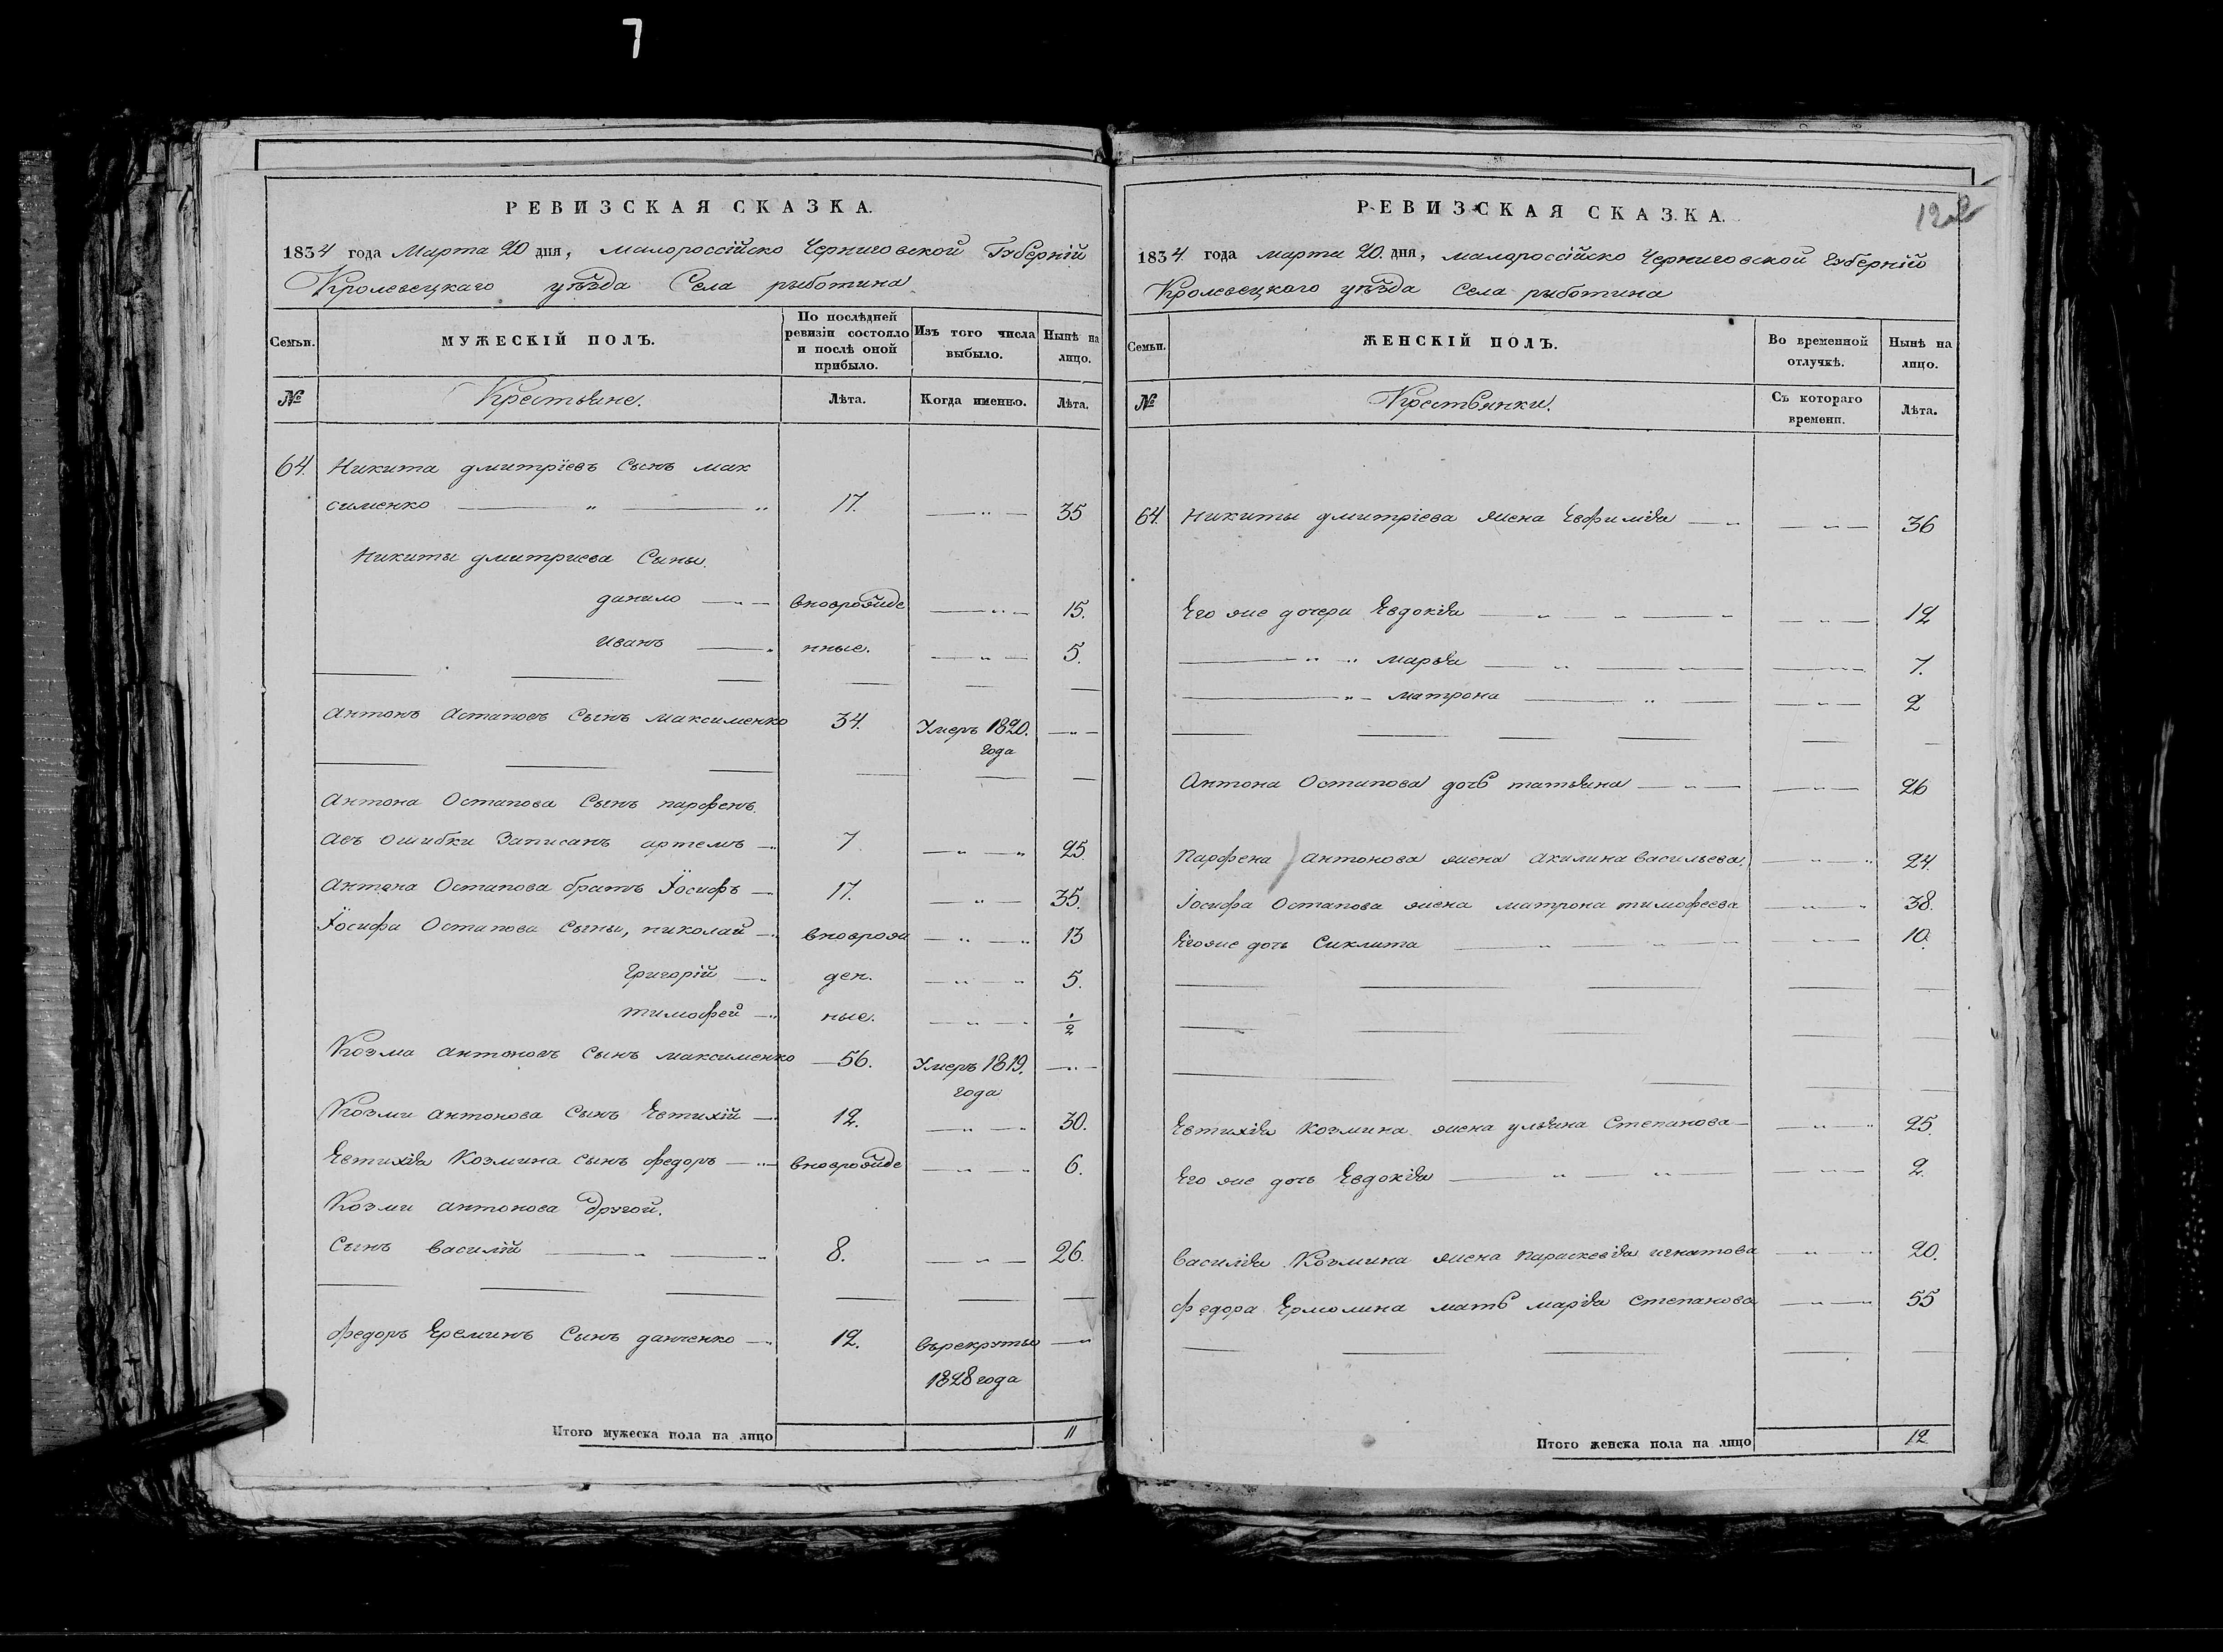 7
РЕВИЗСКАЯ СКАЗКА.
1834 года Марта 20 дня, малороссійско Черниговской Губерній
Кролевецкаго уѣзда Села рыботина
Семьи.
МУЖЕСКІЙ ПОЛЪ.
По послѣдней ревизіи состояло и послѣ оной прибыло.
Изъ того числа выбыло.
Нынѣ на лицо.
№
Крестьяне.
Лѣта.
Когда именно.
Лѣта.
64. Никита дмитріевъ Сынъ мак
сименко 17. 35
Никиты дмитриева Сыны.
данило вноврожде 15.
иванъ нные. 5.
антонъ Астаповъ Сынъ максименко 34. Умеръ 1820.
года
Антона Остапова Сынъ парфенъ
авъ ошибки Записанъ артемъ 7 25
антона Остапова братъ Іосифъ 17. 35.
Іосифа Остапова сыны, николай вноврож 13
Григорій ден. 5.
тимофей ные. 1/2
Козма антоновъ Сынъ максименко 56. Умеръ 1819.
года
Козми антонова Сынъ Евтихій 12. 30.
Евтихія Козмина сынъ федоръ вноврожде 6.
Козми антонова другой.
Сынъ василій 8. 26.
федоръ Ереминъ Сынъ данченко 12. Върекруты
1828 года
Итого мужеска пола на лицо 11
РЕВИЗСКАЯ СКАЗКА.
1834 года марта 20. дня, малороссійско Черниговской Губерній
Кролевецкого уѣзда Села рыботина
Семьи.
ЖЕНСКІЙ ПОЛЪ.
Во временной отлучкѣ.
Нынѣ на лицо.
№
Крестьянки.
Съ котораго времени.
Лѣта.
64. Никиты дмитріева жена Евфимія 36
Его же дочери Евдокія 12
марья 7.
матрона 2
Антона Остапова дочь татьяна 26
Парфена антонова жена акилина васильева. 24.
Іосифа Остапова жена матрона тимофеева 38.
Егоже дочь Сиклита 10.
Евтихія Козмина жена ульяна Степанова 25.
Его же дочь Евдокія 2.
Василія Козмина жена параскевія игнатова 20.
Федора Ермолина мать марія степанова 55
Итого женска пола на лицо 12.